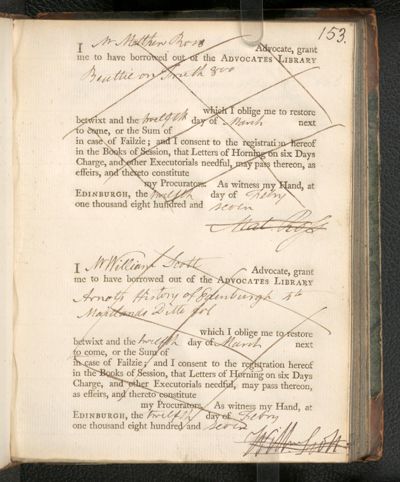 153.
I Mr Matthew Ross Advocate, grant
me to have borrowed out of the ADVOCATES LIBRARY
Beattie on Truth 8vo
which I oblige me to restore
betwixt and the twelfth day of March next
to come, or the Sum of
in case of Failzie; and I consent to the registration hereof
in the Books of Session, that Letters of Horning on six Days
Charge, and other Executorials needful, may pass thereon, as
effeirs, and thereto constitute
my Procurators. As witness my Hand, at
EDINBURGH, the twelfth day of Febry
one thousand eight hundred and seven
Matt Ross
I Mr William Scott Advocate, grant
me to have borrowed out of the ADVOCATES LIBRARY
Arnots History of Edinburgh 4to
Maitlands Ditto fol
which I oblige me to restore
betwixt and the twelfth day of March next
to come, or the Sum of
in case of Failzie; and I consent to the registration hereof
in the Books of Session, that Letters of Horning on six Days
Charge, and other Executorials needful, may pass thereon,
as effeirs, and thereto constitute
my Procurators. As witness my Hand, at
EDINBURGH, the twelfth day of Febry
one thousand eight hundred and seven
William Scott